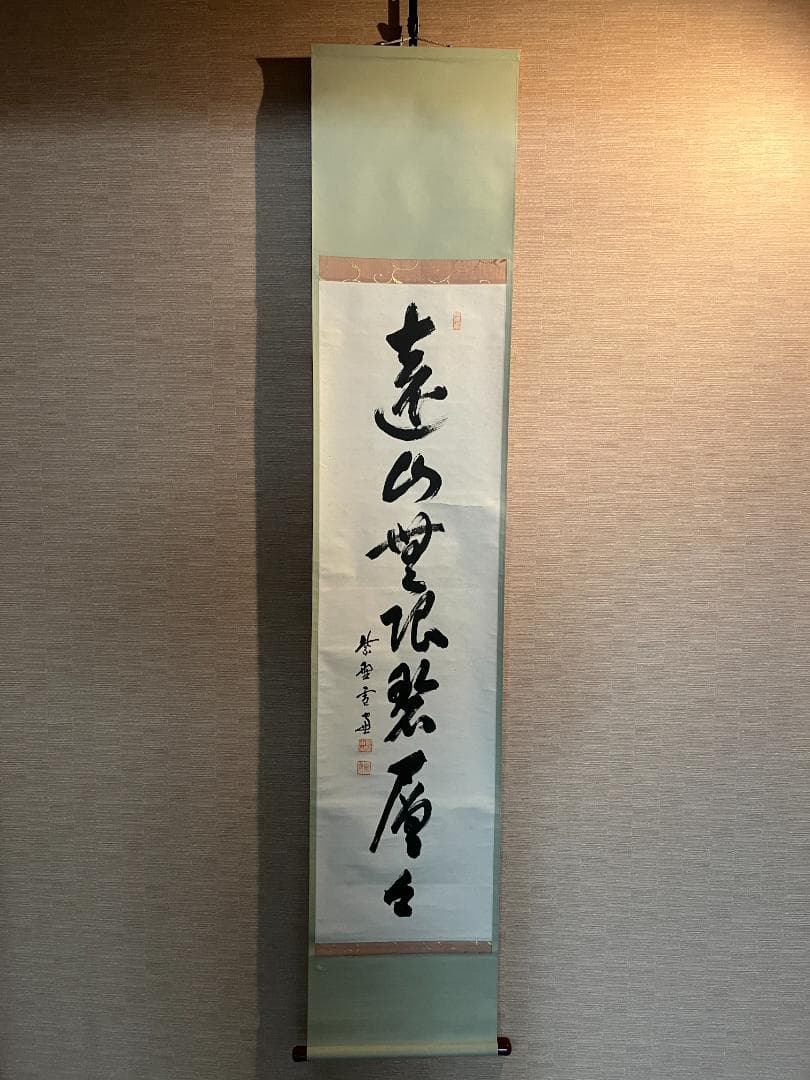 遠山無限碧層々
紫野